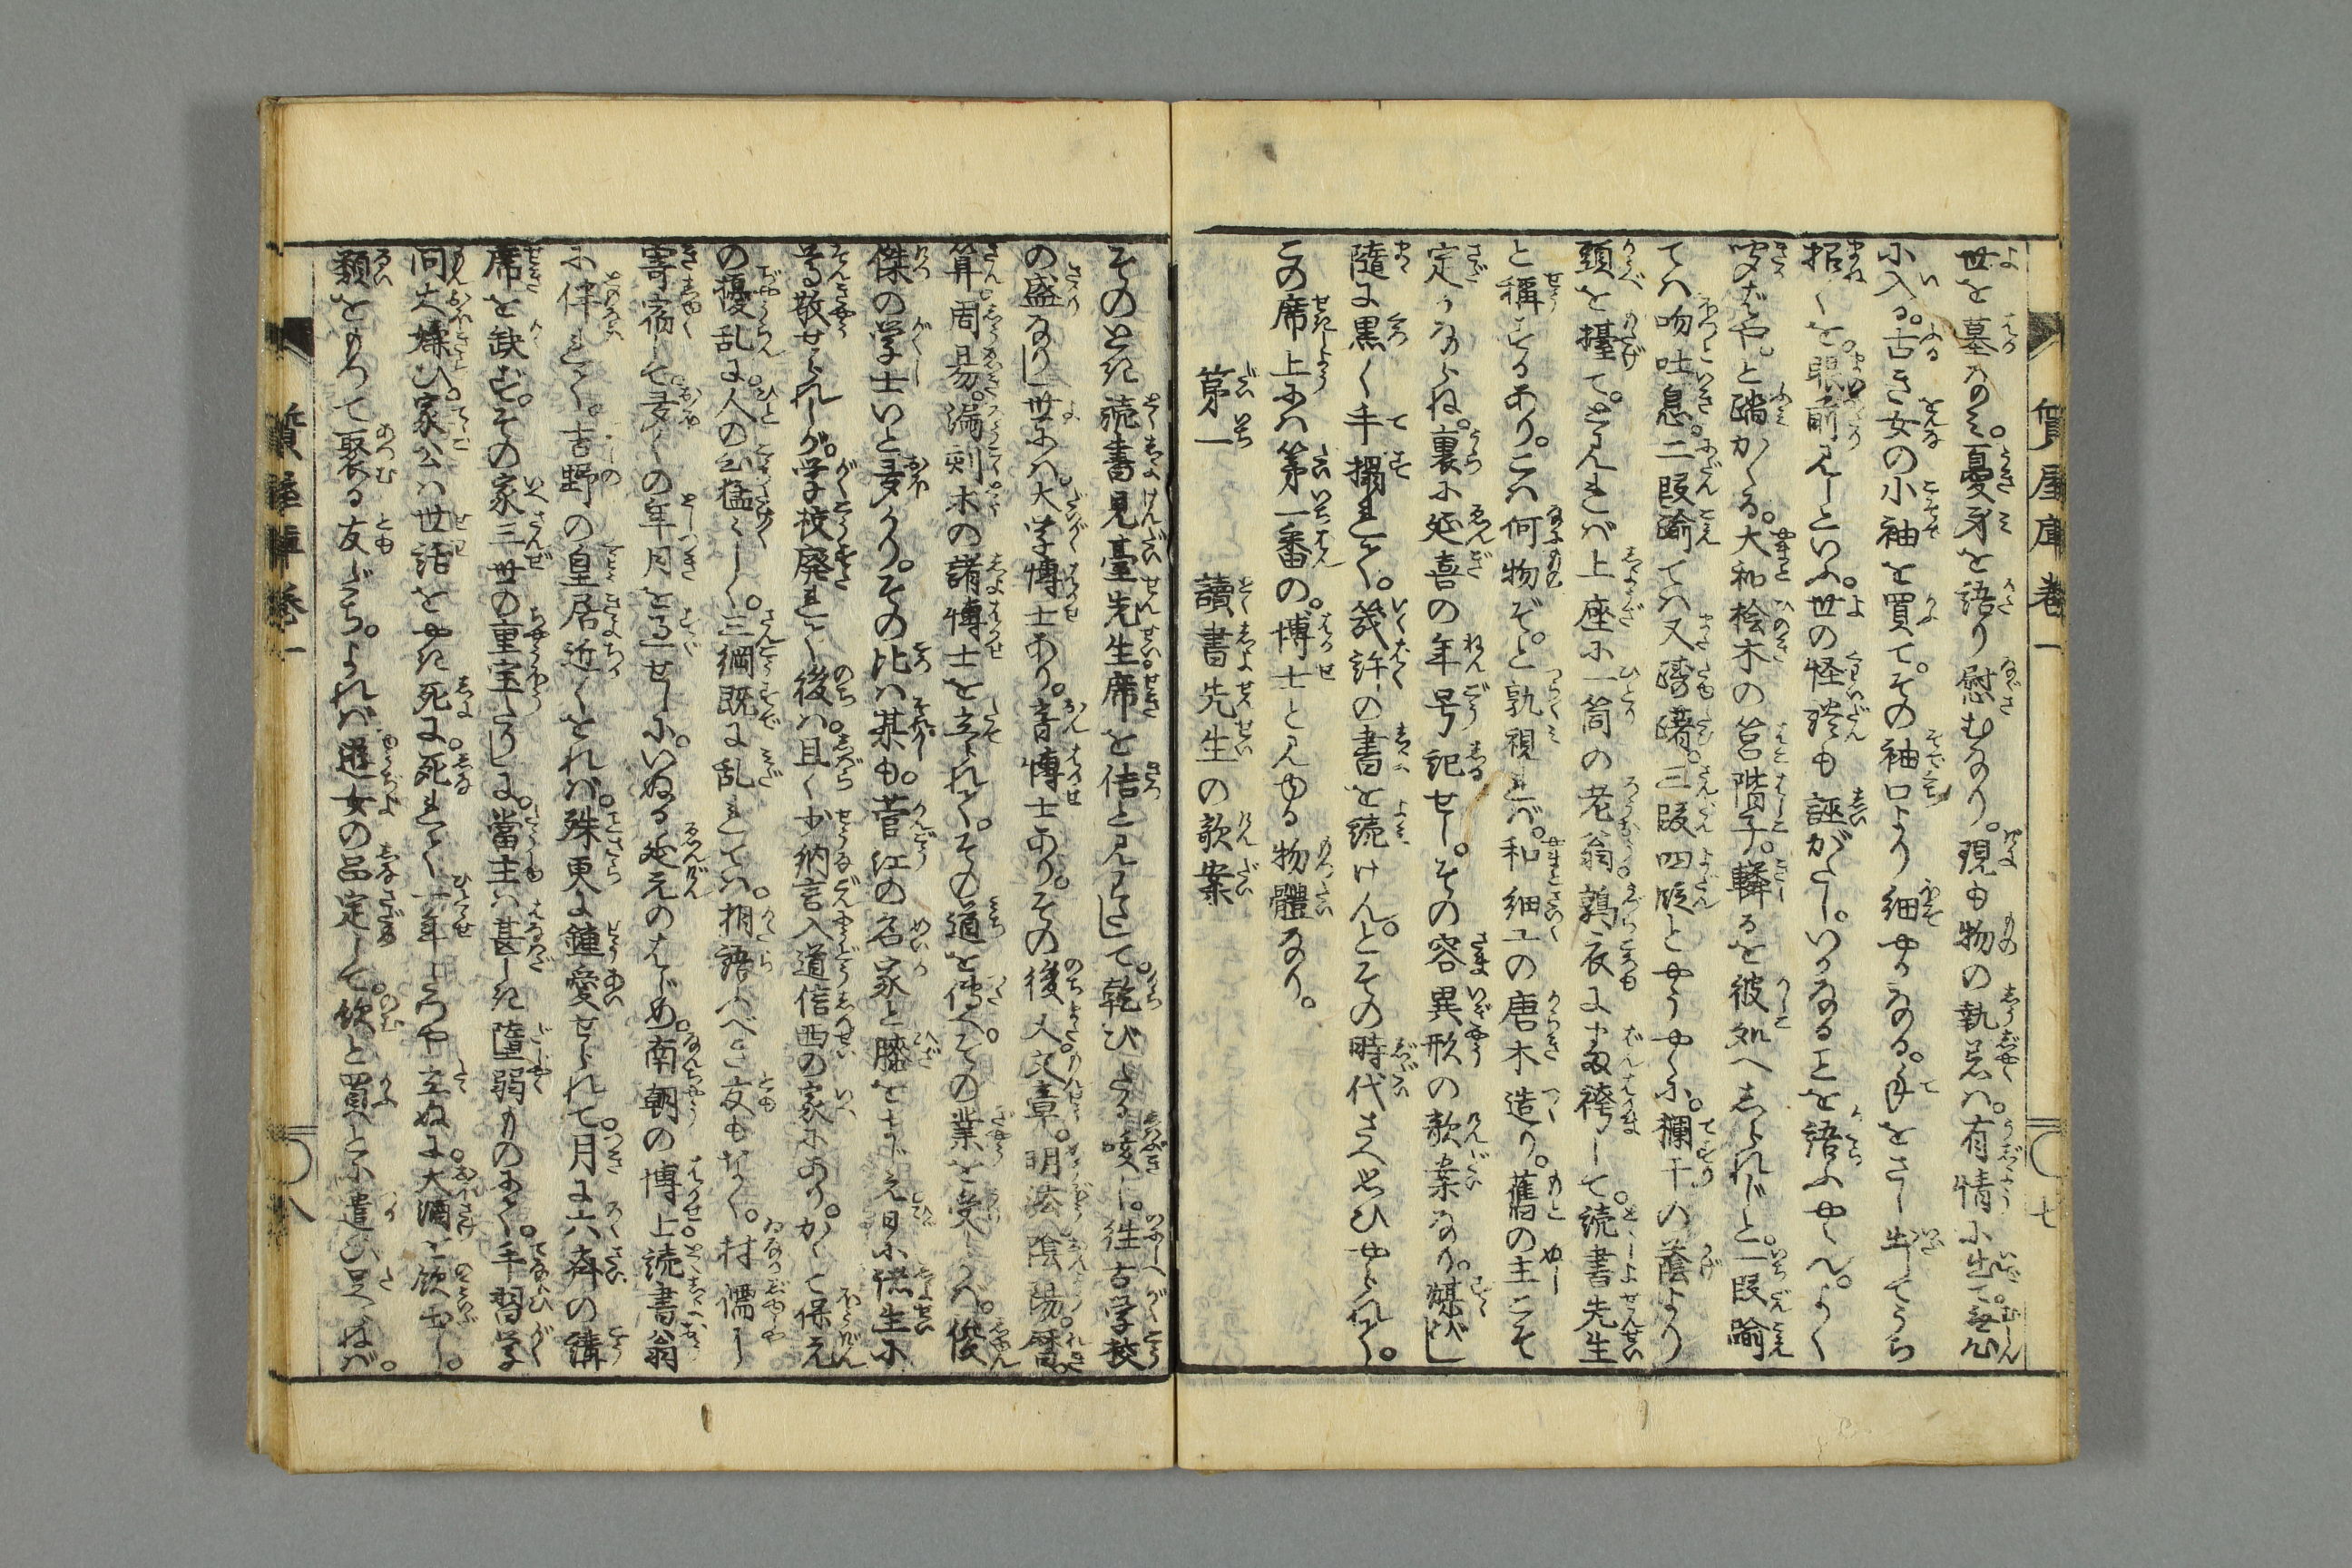 質屋庫 巻一
七
世を墓なみ。憂身を語り慰むなり。現も物の執着は。有情に出て無心
に入る。古き女の小袖を買て。その袖口より細やかなる。手をさし出てうち
招くを。眼前見しといふ。世の怪談も誣がたし。いかなることを語ふやらん。よく
聞ばや。と踏かくる。大和桧木の筥階子。轔るを彼処へしられじと。一段踰
ては吻吐息。二段踰ては又躊躇。三段四段とやうやくに。欄干の蔭より
頭を擡て。とみれば上座に一箇の老翁。鶉衣にまち袴して。読書先生
と称するあり。こは何物ぞ。と孰視れば。和細工の唐木造り。舊の主こそ
定かならね。裏に延喜の年号記せし。その容異形の欹案なり。煤びし
随に黒く手摺れて。幾許の書を読けん。とその時代さへ思ひやられて。
この席上には第一番の。博士と見ゆる物體なり。
第一 讀書先生の欹案
そのとき読書見臺先生席を佶と見わたして。乾びたる咳し。往古学校
の盛なりし世には。大学博士あり。音博士あり。その後文章。明法陰陽。暦。
算周易。漏剋木の諸博士を立られて。その道を傳へ。その業を受しかば。俊
傑の学士いと多かり。その比は某も。菅江の名家と膝をまじえ。日に儒生に
尊敬せられしが。学校廃れて後は。且く少納言入道信西の家にあり。かくて保元
の擾乱に。人の心猛々しく。三綱既に乱れては。相語ふべき友もなく。村儒に
寄宿して。多くの年月を過せしに。いぬる延元のはじめ。南朝の博士読書翁
に伴れて。吉野の皇居近くをれば。殊更に鍾愛せられて。月に六斎の講
席を缺ず。その家三世の重宝たりしに。當主は甚しき堕弱ものにて。手習学
問大嫌ひ。家公は世話をやき死に。死れて一年たつや立ぬに。大酒を飲出し。
類をもつて聚る友だち。よれば遊女の品定して。飲と買とに遣ひ足らねば。
質屋庫 巻一
八